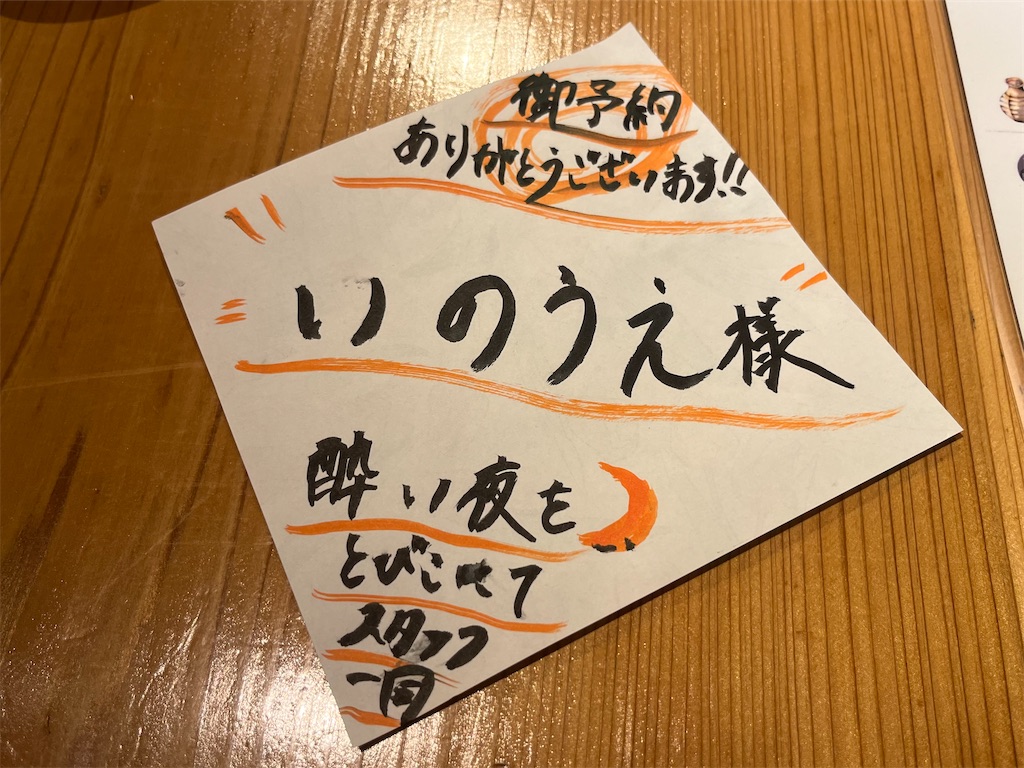 御予約
ありがとうございます!!
いのうえ様
酔い夜を‥
とびこせ7
スタッフ
一同